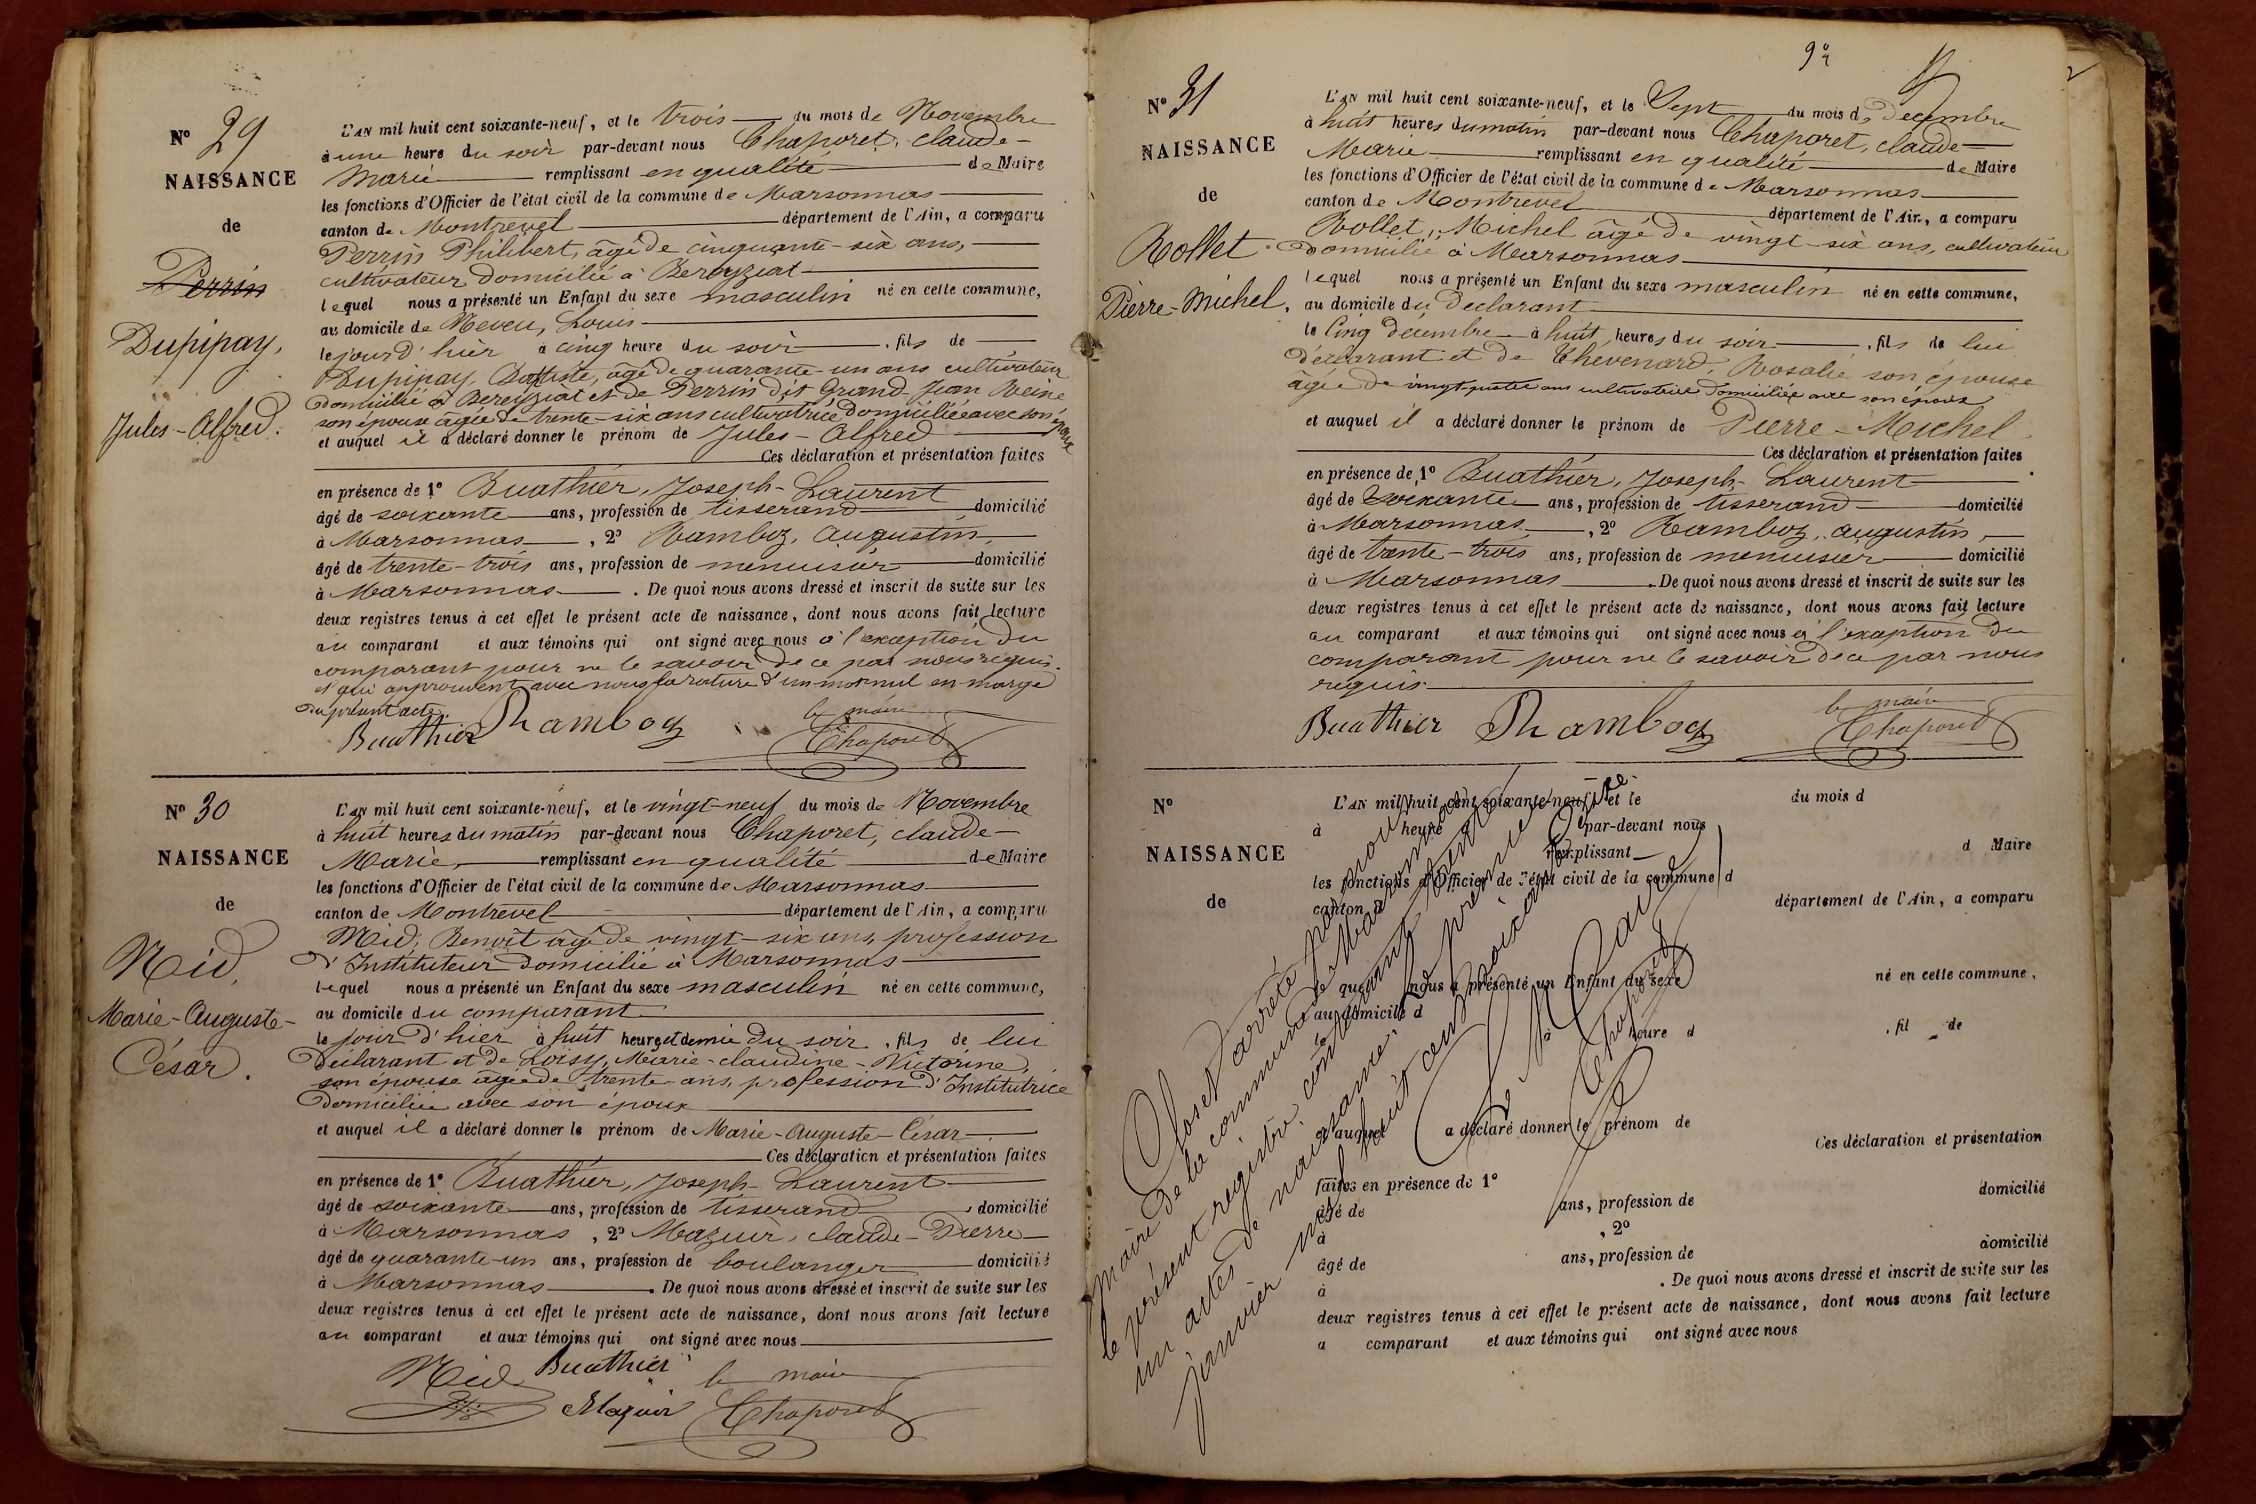 N° 29
NAISSANCE
de
Perrin
Dupipay,
Jules-Alfred.
L'AN mil huit cent soixante-neuf, et le trois du mois de Novembre
à une heure du soir par-devant nous Chaporet, claude-
Marie remplissant en qualité de Maire
les fonctions d'Officier de l'état civil de la commune de Marsonnas
canton de Montrevel département de l'Ain, a comparu
Perrin Philibert, âgé de cinquante-six ans,
cultivateur domicilié à Bereyziat
lequel nous a présenté un Enfant du sexe masculin né en cette commune,
au domicile de Neveu, Louis
le jour d'hièr à cinq heure du soir . fils de
Dupipay, Baptiste, âgé de quarante-un ans cultivateur
domicilié à Bereyziat et de Perrin dit Grand-Jean Reine
son épouse âgée de trente-six ans cultivatrice domiciliée avec son époux
et auquel il a déclaré donner le prénom de Jules-Alfred
Ces déclaration et présentation faites
en présence de 1° Buathier, Joseph-Laurent
âgé de soixante ans, profession de tisserand domicilié
à Marsonnas , 2° Ramboz, Augustin,
âgé de trente-trois ans, profession de menuisier domicilié
à Marsonnas . De quoi nous avons dressé et inscrit de suite sur les
deux registres tenus à cet effet le présent acte de naissance, dont nous avons fait lecture
au comparant et aux témoins qui ont signé avec nous à l'exception du
comparant pour ne le savoir de ce par nous requis.
et qui approuvent avec nous la rature d'un mot nul en marge
du présent acte.
Buathier Ramboz le maire
Chaporet
N° 30
NAISSANCE
de
Nid,
Marie-Auguste-
César.
L'AN mil huit cent soixante-neuf, et le vingt-neuf du mois de Novembre
à huit heures du matin par-devant nous Chaporet, claude-
Marie, remplissant en qualité de Maire
les fonctions d'Officier de l'état civil de la commune de Marsonnas
canton de Montrevel département de l'Ain, a comparu
Nid, Benoît âgé de vingt-six ans, profession
d'Instituteur domicilié à Marsonnas
lequel nous a présenté un Enfant du sexe masculin né en cette commune,
au domicile du comparant
le jour d'hier à huit heures et demie du soir . fils de lui
déclarant et de Loisy, Marie-claudine-Victorine,
son épouse âgée de trente ans, profession d'Institutrice
domiciliée avec son époux
et auquel il a déclaré donner le prénom de Marie-Auguste-César
Ces déclaration et présentation faites
en présence de 1° Buathier, Joseph-Laurent
âgé de soixante ans, profession de tisserand , domicilié
à Marsonnas , 2° Mazuir, claude-Pierre
âgé de quarante-un ans, profession de boulanger domicilié
à Marsonnas . De quoi nous avons dressé et inscrit de suite sur les
deux registres tenus à cet effet le présent acte de naissance, dont nous avons fait lecture
au comparant et aux témoins qui ont signé avec nous
Nid Buathier le maire
Mazuir Chaporet
9
N° 31
NAISSANCE
de
Rollet
Pierre-Michel.
L'AN mil huit cent soixante-neuf, et le Sept du mois de Decembre
à huit heures du matin par-devant nous Chaporet, claude-
Marie remplissant en qualité de Maire
les fonctions d'Officier de l'état civil de la commune de Marsonnas
canton de Montrevel département de l'Ain, a comparu
Rollet, Michel âgé de vingt-six ans, cultivateur
domicilié à Marsonnas
lequel nous a présenté un Enfant du sexe masculin né en cette commune,
au domicile du déclarant
le Cinq decembre à huit heures du soir , fils de lui
déclarant et de Thévenard, Rosalie son épouse
âgée de vingt-quatre ans cultivatrice domiciliée avec son époux
et auquel il a déclaré donner le prénom de Pierre-Michel
Ces déclaration et présentation faites
en présence de 1° Buathier, Joseph-Laurent
âgé de soixante ans, profession de tisserand domicilié
à Marsonnas , 2° Ramboz, Augustin,
âgé de trente-trois ans, profession de menuisier domicilié
à Marsonnas . De quoi nous avons dressé et inscrit de suite sur les
deux registres tenus à cet effet le présent acte de naissance, dont nous avons fait lecture
au comparant et aux témoins qui ont signé avec nous à l'exception du
comparant pour ne le savoir de ce par nous
requis.
Buathier Ramboz le maire
Chaporet
N°
NAISSANCE
de
L'AN mil huit cent soixante-neuf, et le du mois d
à heure par-devant nous
remplissant d Maire
les fonctions d'Officier de l'état civil de la commune d
canton d département de l'Ain, a comparu
quel nous a présenté un Enfant du sexe né en cette commune,
au domicile d
le à heure d . fil de
et auquel a déclaré donner le prénom de
Ces déclaration et présentation
faites en présence de 1°
âgé de ans, profession de domicilié
à , 2°
âgé de ans, profession de domicilié
à . De quoi nous avons dressé et inscrit de suite sur les
deux registres tenus à cet effet le présent acte de naissance, dont nous avons fait lecture
a comparant et aux témoins qui ont signé avec nous
Clos et arrêté par nous
maire de la commune de Marsonnas
le présent registre contenant trente
un actes de naissance. Le premier
janvier mil huit cent soixante-dix.
Le Maire
Chaporet